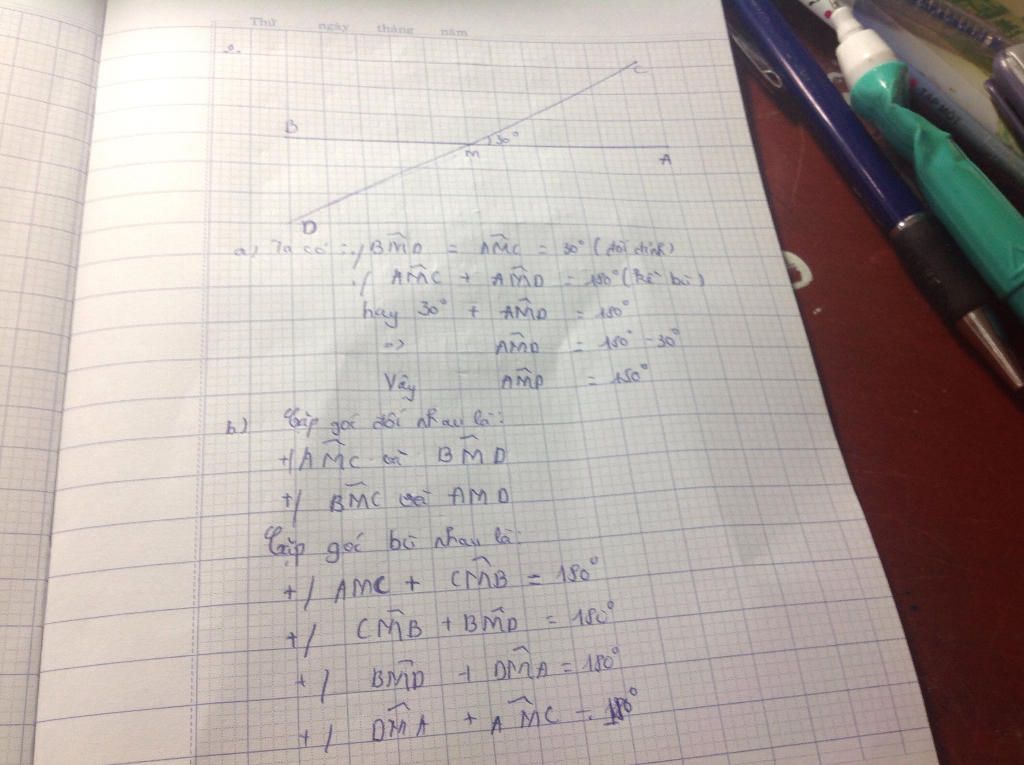 Thứ ngày tháng năm
C
B
30°
M
A
D
a) Ta có : ./ BM̂D = AM̂C = 30° (đối đỉnh)
./ AM̂C + AM̂D = 180° (kề bù)
hay 30° + AM̂D = 180°
=> AM̂D = 180° - 30°
Vậy AM̂D = 150°
b) Cặp góc đối nhau là:
+/ AM̂C và BM̂D
+/ BM̂C và AMD
Cặp góc bù nhau là:
+/ AMC + CM̂B = 180°
+/ CM̂B + BM̂D = 180°
+/ BM̂D + DM̂A = 180°
+/ DM̂A + AM̂C = 180°